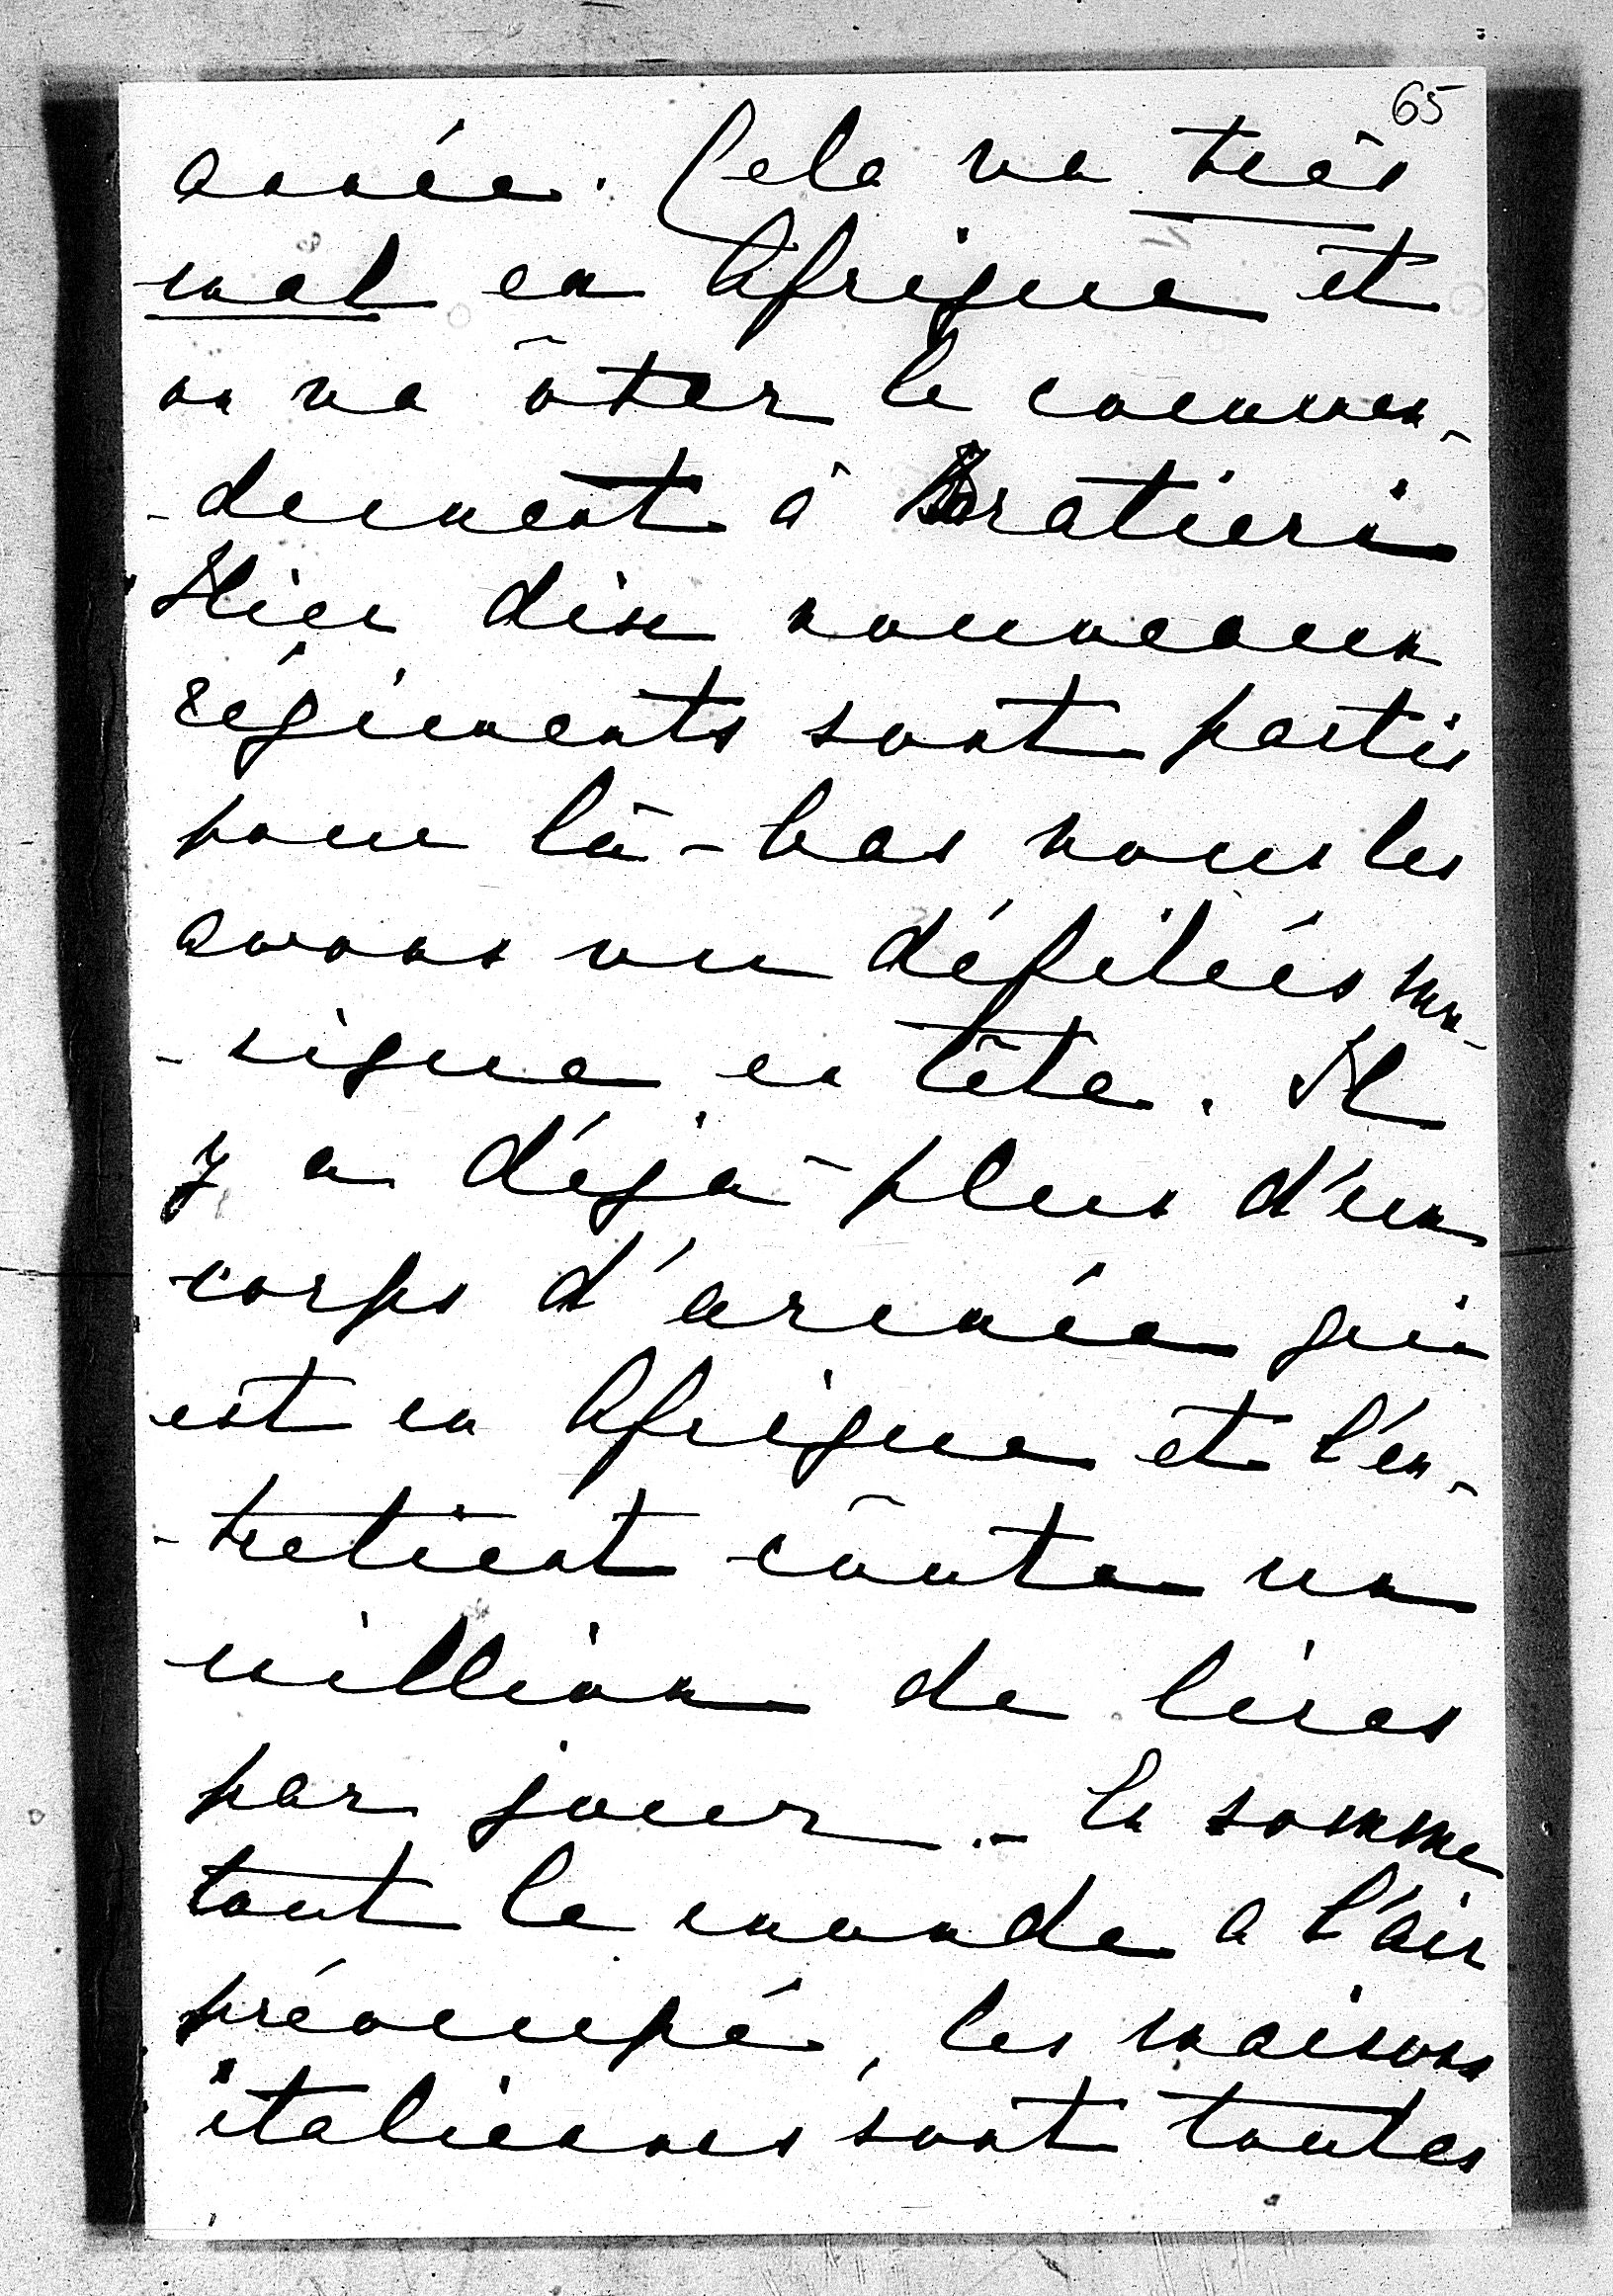 65
année. Cela va très
mal en Afrique et
on va ôter le comman-
-dement à Baratieri
Hier dix nouveaux
régiments sont partis
pour là-bas nous les
avons vu défilés mu-
-sique en tête. Il
y a déjà plus d'un
corps d'armée qui
est en Afrique et l'en-
-tretient coûte un
million de lires
par jour.- En somme
tout le monde a l'air
préoccupé, les maisons
italiennes sont toutes